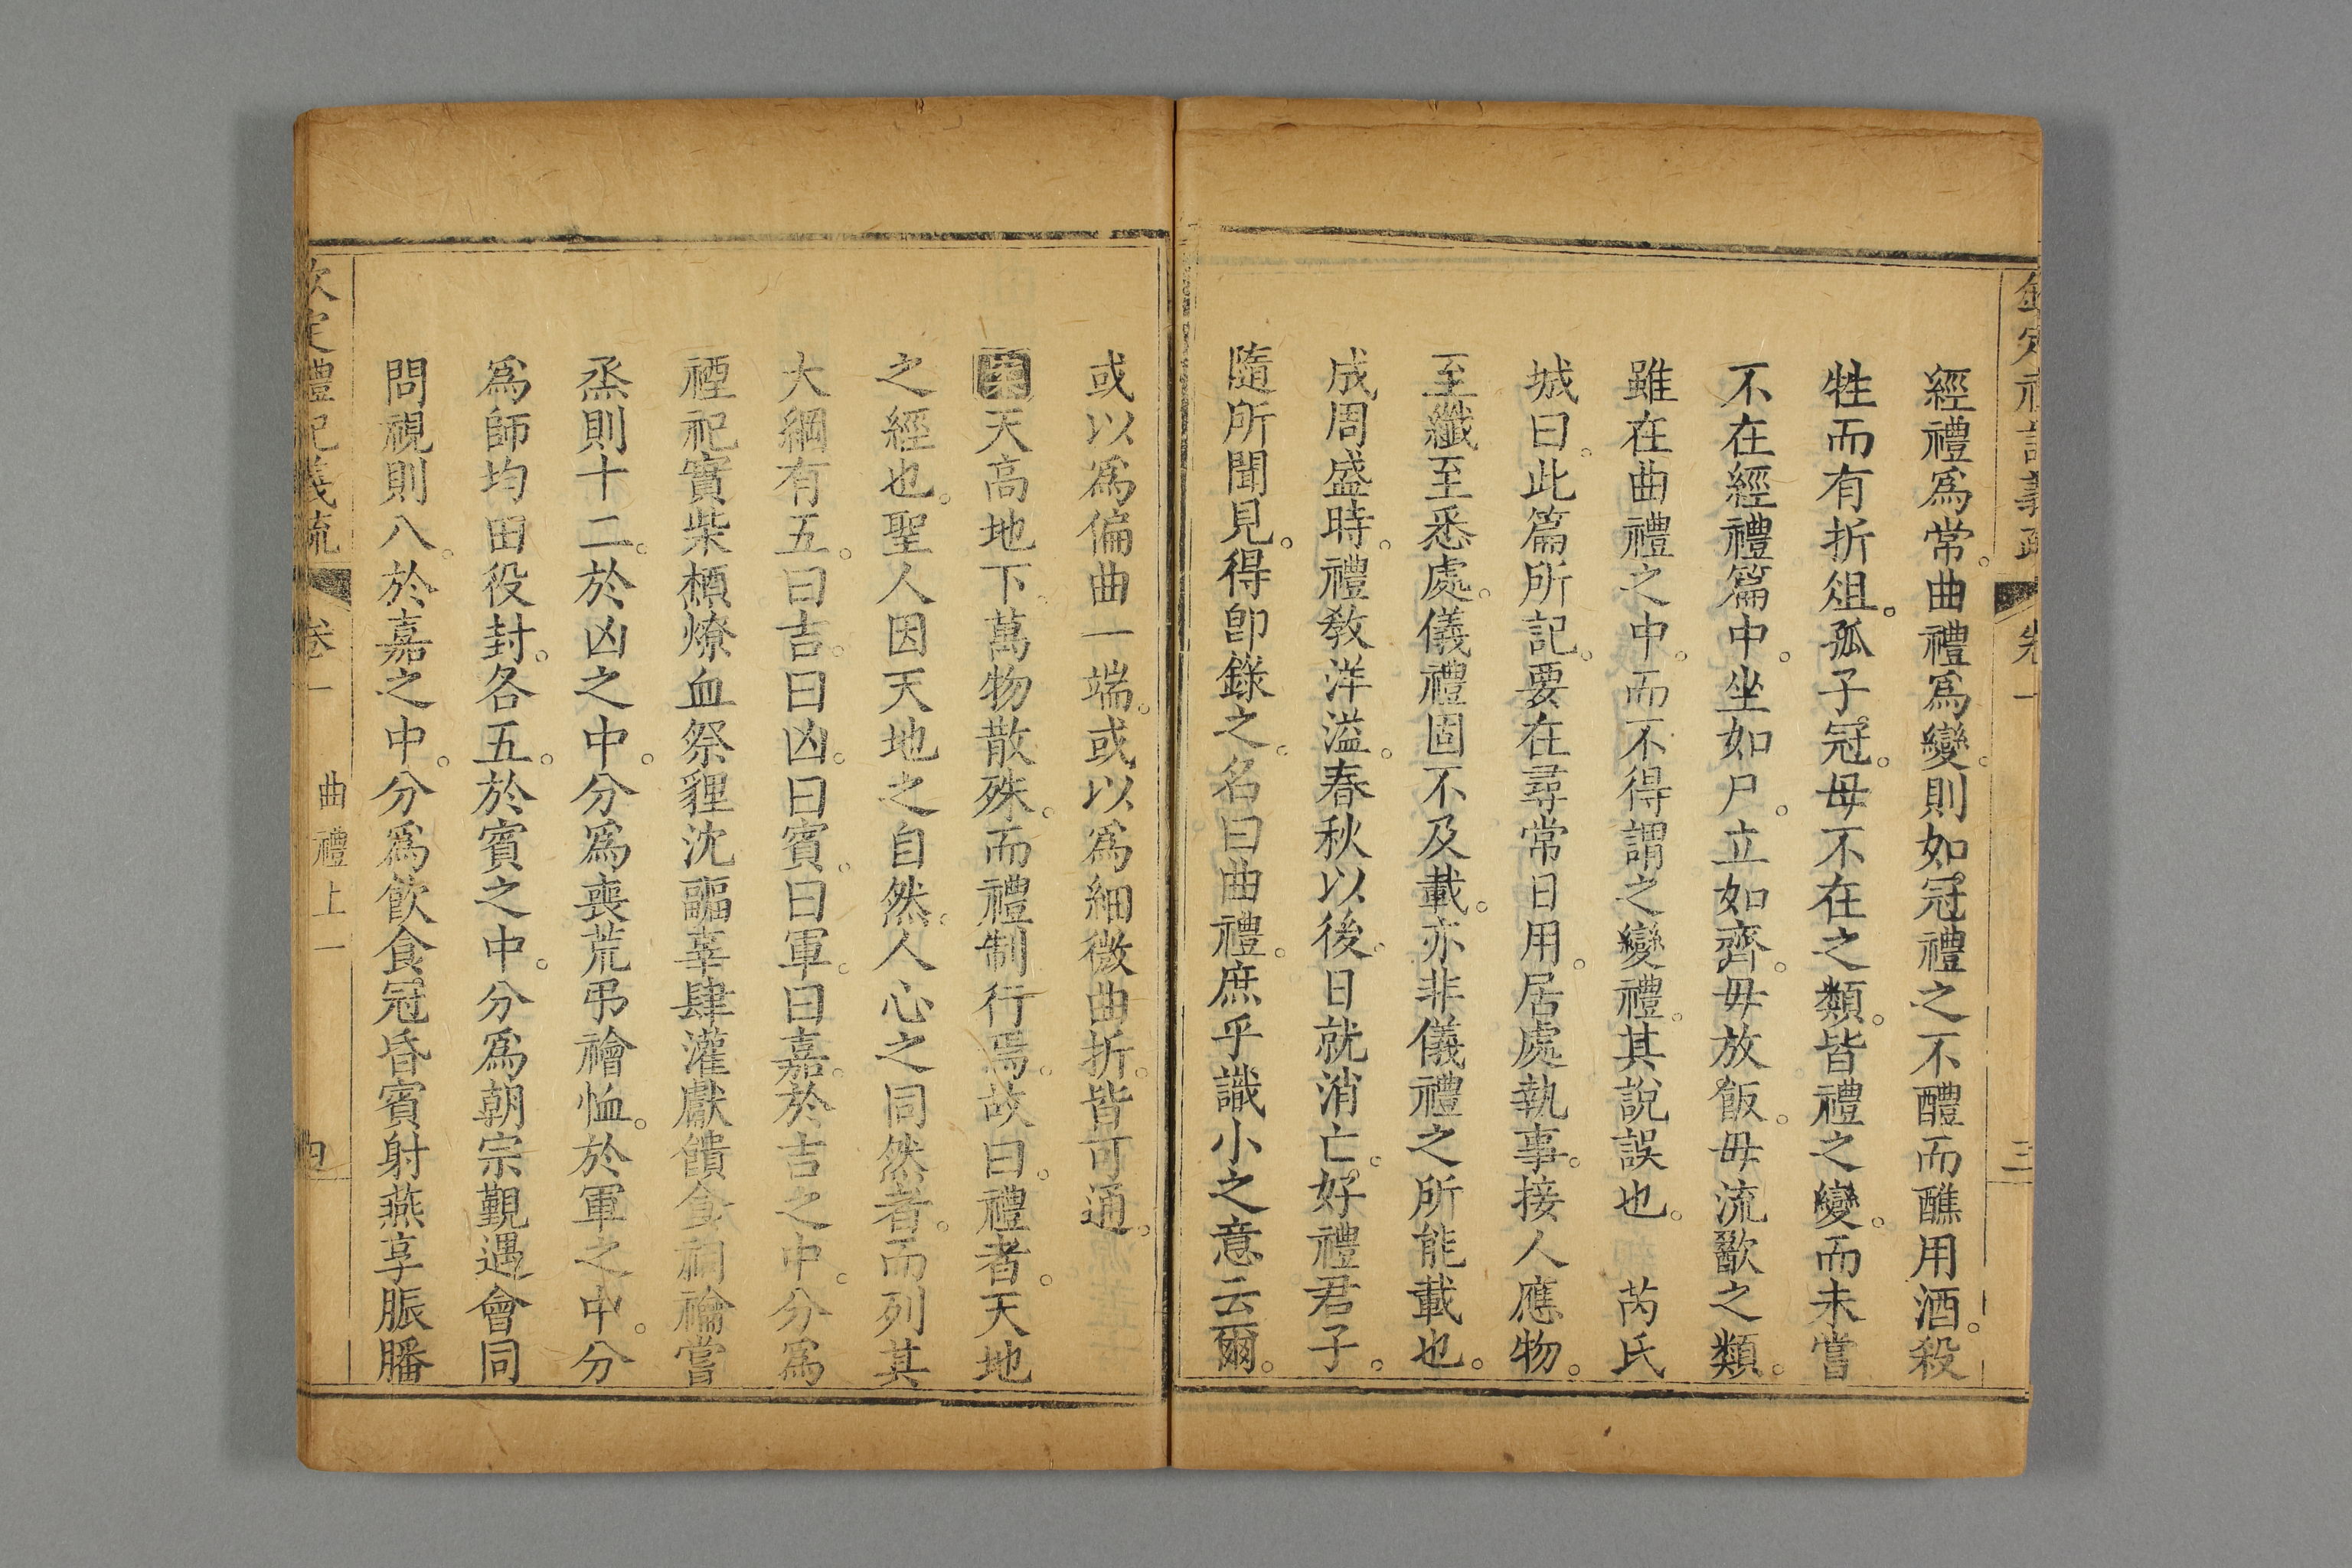 欽定禮記義疏 卷一 三
經禮爲常。曲禮爲變。則如冠禮之不醴而醮用酒。殺
牲而有折俎。孤子冠。母不在之類。皆禮之變。而未嘗
不在經禮篇中。坐如尸。立如齊。毋放飯。毋流歠之類。
雖在曲禮之中。而不得謂之變禮。其說誤也。 芮氏
城曰。此篇所記。要在尋常日用。居處執事。接人應物。
至纖至悉處。儀禮固不及載。亦非儀禮之所能載也。
成周盛時。禮敎洋溢。春秋以後。日就消亡。好禮君子。
隨所聞見。得卽錄之。名曰曲禮。庶乎識小之意云爾。
或以爲偏曲一端。或以爲細微曲折。皆可通。
天高地下。萬物散殊。而禮制行焉。故曰。禮者。天地
之經也。聖人因天地之自然。人心之同然者。而列其
大綱有五。曰吉。曰凶。曰賓。曰軍。曰嘉。於吉之中。分爲
禋祀實柴槱燎血祭貍沈疈辜肆灌獻饋食祠禴嘗
烝則十二。於凶之中。分爲喪荒弔禬恤。於軍之中。分
爲師均田役封。各五。於賓之中。分爲朝宗覲遇會同
問視則八。於嘉之中。分爲飮食冠昏賓射燕享脤膰
欽定禮記義疏 卷一 曲禮上一 四